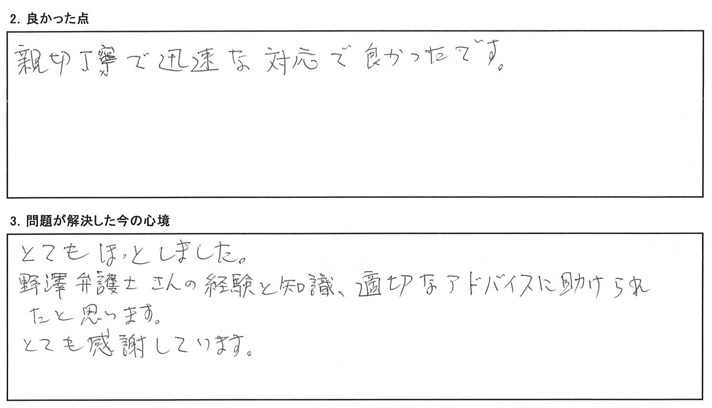 2. 良かった点
親切丁寧で迅速な対応で良かったです。
3. 問題が解決した今の心境
とてもほっとしました。
野澤弁護士さんの経験と知識、適切なアドバイスに助けられ
たと思います。
とても感謝しています。